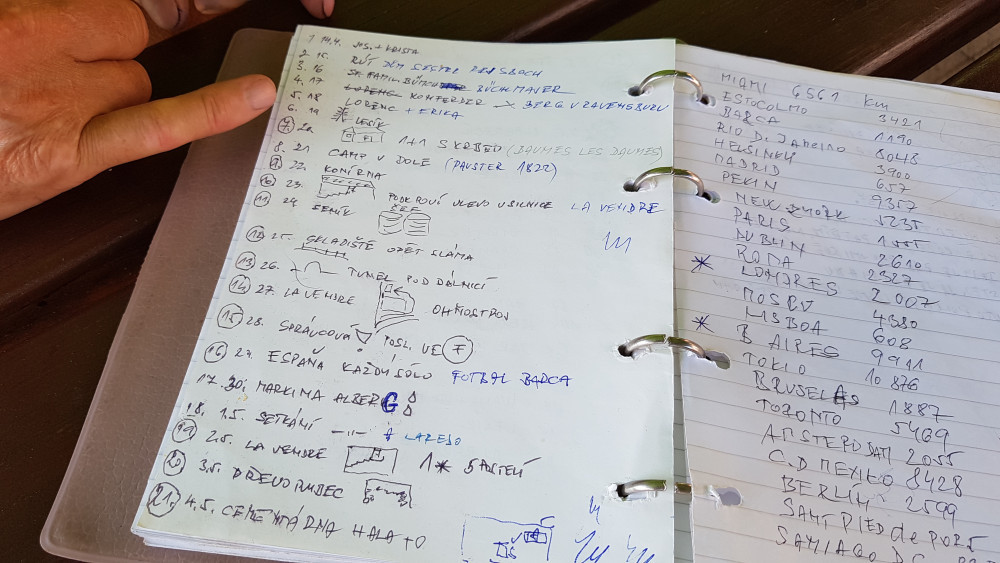 1 14.4. JOS. + KRISTA
2. 15. RÚT DEM SESTER
3. 16 BÜCHMAIER
4. 17 KONTERDER → BERG U RAVENSBURU
5. 18 LORENC + ERIKA
6. 19 LESÍK
7. 20 1+1 SKRBED (BAUMES LES DAUMES)
8. 21 CAMP V DOLE (PAUSTER 1822)
9 22. KONÍRNA
10 23. PODKROVÍ VLEVO U SILNICE LA VENDRE
11 24. SENÍK
12. 25. SKLADIŠTĚ OPĚT SLÁMA
13 26. TUNEL POD DÁLNICÍ
14. 27. LA VENDRE OHŇOSTROJ
15 28. SPRÁVCOVÁ POSL. VE 7
16 29. ESPAÑA KAŽDÝ SÓLO FOTBAL BARCA
17. 30. MARKINA ALBERG
18. 1.5. SETKÁNÍ —"— LAREDO
19 2.5. LA VENDRE 1* 5 POSTELÍ
20 3.5. DŘEVO
21. 4.5. CEMENTÁRNA HALA +0
MIAMI 6561 km
ESTOCOLMO 3421
BARCA 1190
RIO DI JANEIRO 8048
HELSINKY 3900
MADRID 657
PEKIN 9357
NEW YORK 5235
PARIS
DUBLIN 2610
ROMA 2327
* LONDRES 2007
MOSBU 4380
MSBOA 608
* B AIRES 9911
TOKIO 10 876
BRUSELAS 1887
TORONTO 5469
AMSTERDAM 2055
C.D MEXIKO 8428
BERLIN 2599
SANT PIED de PORT
SAMIAGO D.C.